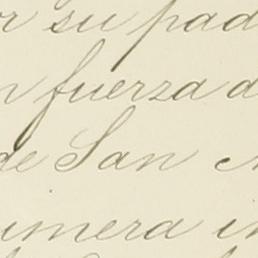 r su pad
n fuerza d
de San
imera in